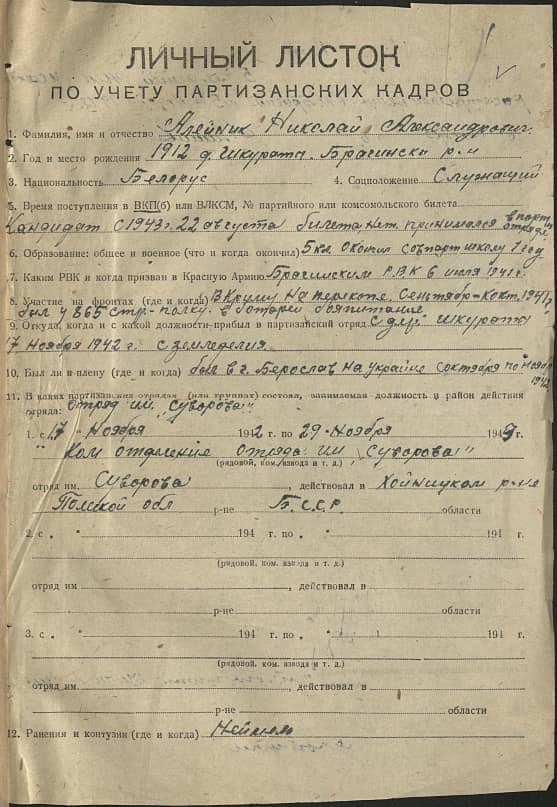 ЛИЧНЫЙ ЛИСТОК
ПО УЧЕТУ ПАРТИЗАНСКИХ КАДРОВ
1. Фамилия, имя и отчество Алейник Николай Александрович
2. Год и место рождения 1912 д. Шкурата Брагинско р-н
3. Национальность Белорус 4. Соцположение Служащий
5. Время поступления в ВКП(б) или ВЛКСМ, № партийного или комсомольского билета
Кандидат с 1943 г. 22 августа билета нет принимался в парт отряде
6. Образование: общее и военное (что и когда окончил) 5 кл окончил совпартшколу 1 год
7. Каким РВК и когда призван в Красную Армию Брагинским РВК 6 июля 1941 г.
8. Участие на фронтах (где и когда) В Крыму на перекопе Сентябрь-Окт. 1941 г.
был у 865 стр-полку в батареи
9. Откуда, когда и с какой должности прибыл в партизанский отряд С дер. Шкурата
17 Ноября 1942 г. с земледелия.
10. Был ли в плену (где и когда) был в г. Берослав на Украине с октября по Ноябрь
11. В каких партизанских отрядах (или группах) состоял, занимаемая должность и район действия
отряда: Отряд им "Суворова"
1. с "17" Ноября 1942 г. по "29" Ноября 1943 г.
"Ком отделение Отряда им "Суворова"
(рядовой, ком. взвода и т. д.)
отряд им Суворова , действовал в Хойницком р-не
Полской обл р-не Б.С.С.Р. области
2. с " " 194 г. по " " 194 г.
(рядовой, ком. взвода и т. д.)
отряд им , действовал в
р-не области
3. с " " 194 г. по " " 194 г.
(рядовой, ком. взвода и т. д.)
отряд им. , действовал в
р-не области
12. Ранения и контузии (где и когда)